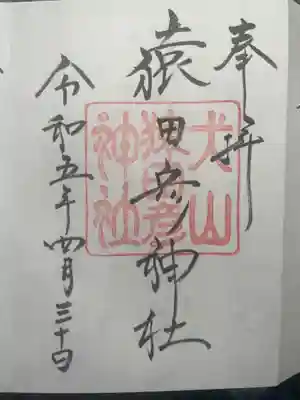 奉拝
猿田彦神社
令和五年四月三十日
犬山
猿田彦
神社